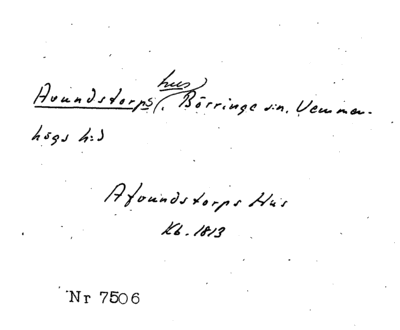 hus
Avundstorps, Börringe sn. Vemmen-
högs hd
Afvundstorps Hus
Kb. 1813
Nr 7506